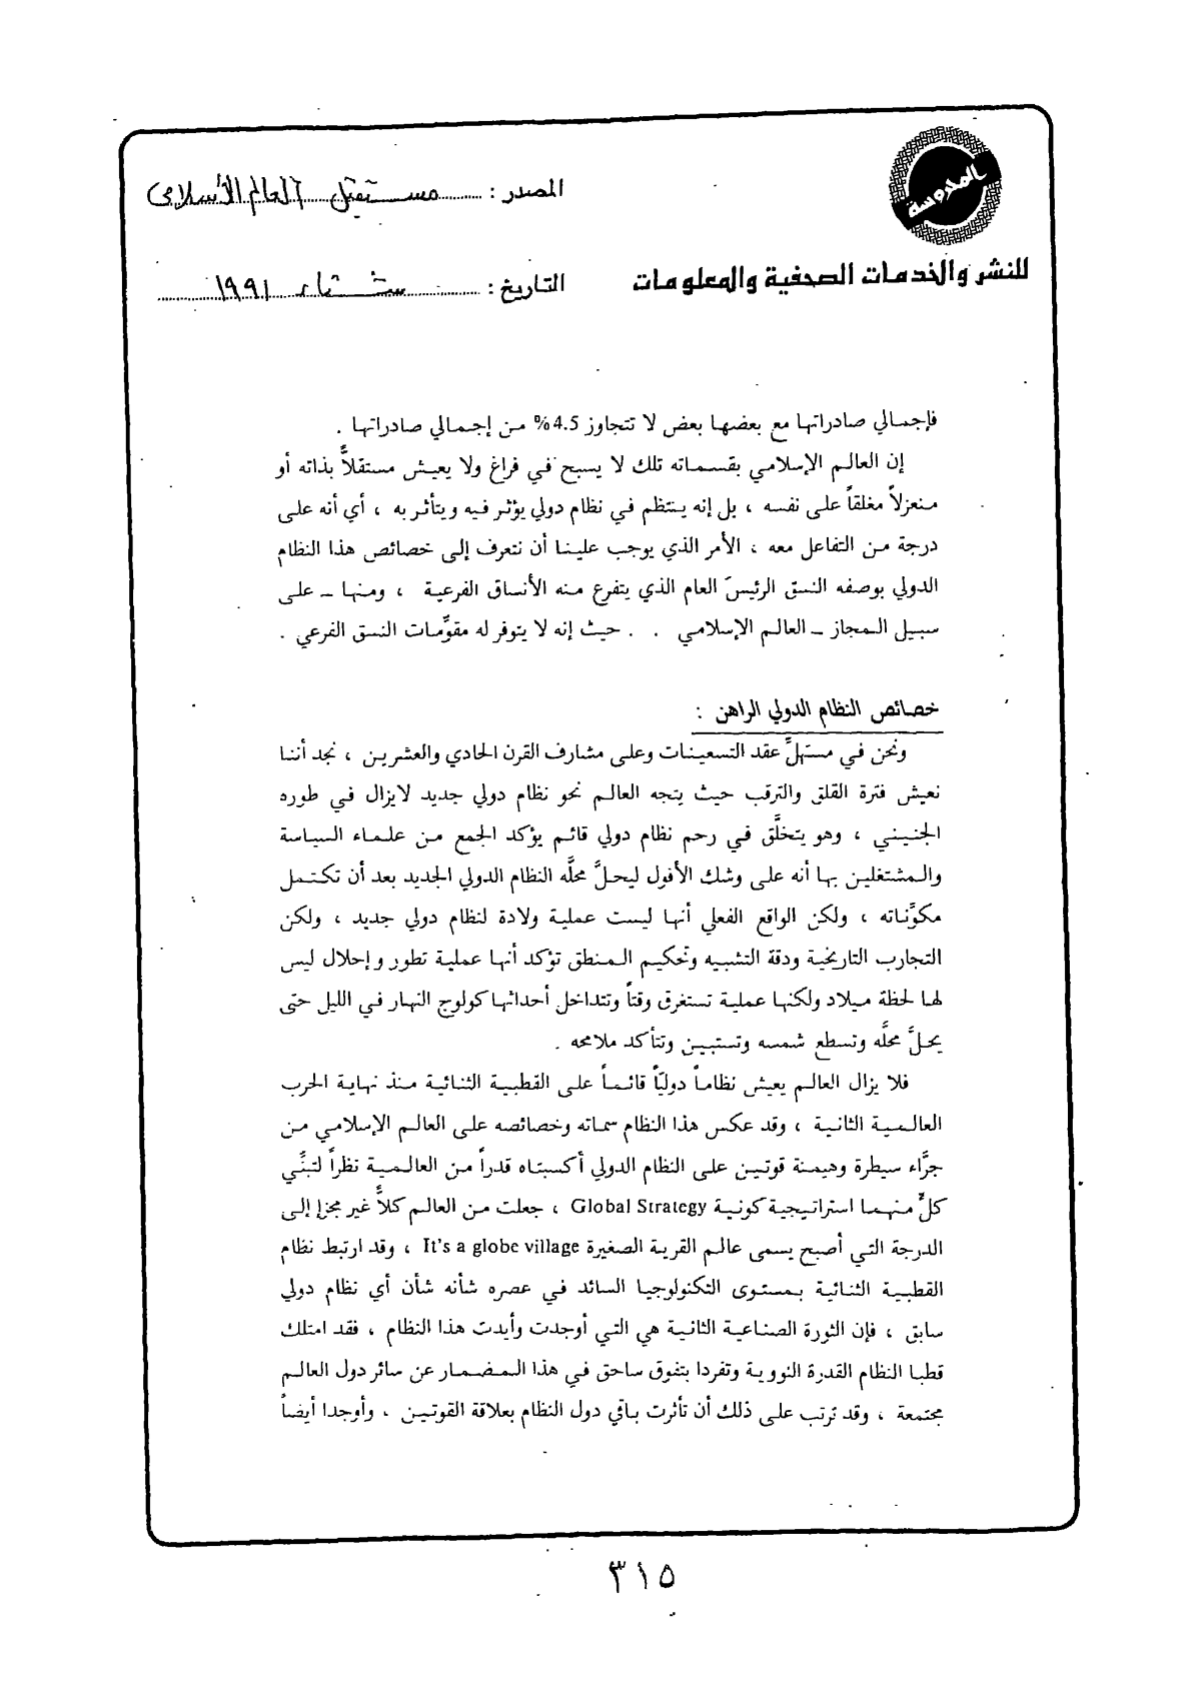 المحروسة
للنشر والخدمات الصحفية والمعلومات
المصدر : مستقبل العالم الإسلامى
التاريخ : شتاء ١٩٩١
فإجمالي صادراتها مع بعضها بعض لا تتجاوز 4.5% من إجمالي صادراتها .
إن العالم الإسلامي بقسماته تلك لا يسبح في فراغ ولا يعيش مستقلاًّ بذاته أو
منعزلاً مغلقاً على نفسه ، بل إنه ينتظم في نظام دولي يؤثر فيه ويتأثر به ، أي أنه على
درجة من التفاعل معه ، الأمر الذي يوجب علينا أن نتعرف إلى خصائص هذا النظام
الدولي بوصفه النسق الرئيسَ العام الذي يتفرع منه الأنساق الفرعية ، ومنها ــ على
سبيل المجاز ــ العالم الإسلامي . . حيث إنه لا يتوفر له مقوِّمات النسق الفرعي .
خصائص النظام الدولي الراهن :
ونحن في مستهلِّ عقد التسعينات وعلى مشارف القرن الحادي والعشرين ، نجد أننا
نعيش فترة القلق والترقب حيث يتجه العالم نحو نظام دولي جديد لايزال في طوره
الجنيني ، وهو يتخلَّق في رحم نظام دولي قائم يؤكد الجمع من علماء السياسة
والمشتغلين بها أنه على وشك الأفول ليحلَّ محلَّه النظام الدولي الجديد بعد أن تكتمل
مكوِّناته ، ولكن الواقع الفعلي أنها ليست عملية ولادة لنظام دولي جديد ، ولكن
التجارب التاريخية ودقة التشبيه وتحكيم المنطق تؤكد أنها عملية تطور وإحلال ليس
لها لحظة ميلاد ولكنها عملية تستغرق وقتاً وتتداخل أحداثها كولوج النهار في الليل حتى
يحلَّ محلَّه وتسطع شمسه وتستبين وتتأكد ملامحه .
فلا يزال العالم يعيش نظاماً دوليّاً قائماً على القطبية الثنائية منذ نهاية الحرب
العالمية الثانية ، وقد عكس هذا النظام سماته وخصائصه على العالم الإسلامي من
جرَّاء سيطرة وهيمنة قوتين على النظام الدولي أكسبتاه قدراً من العالمية نظراً لتبنِّي
كلٍّ منهما استراتيجية كونية Global Strategy ، جعلت من العالم كلاًّ غير مجزإ إلى
الدرجة التي أصبح يسمى عالم القرية الصغيرة It's a globe village ، وقد ارتبط نظام
القطبية الثنائية بمستوى التكنولوجيا السائد في عصره شأنه شأن أي نظام دولي
سابق ، فإن الثورة الصناعية الثانية هي التي أوجدت وأيدت هذا النظام ، فقد امتلك
قطبا النظام القدرة النووية وتفردا بتفوق ساحق في هذا المضمار عن سائر دول العالم
مجتمعة ، وقد ترتب على ذلك أن تأثرت باقي دول النظام بعلاقة القوتين ، وأوجدا أيضاً
٣١٥